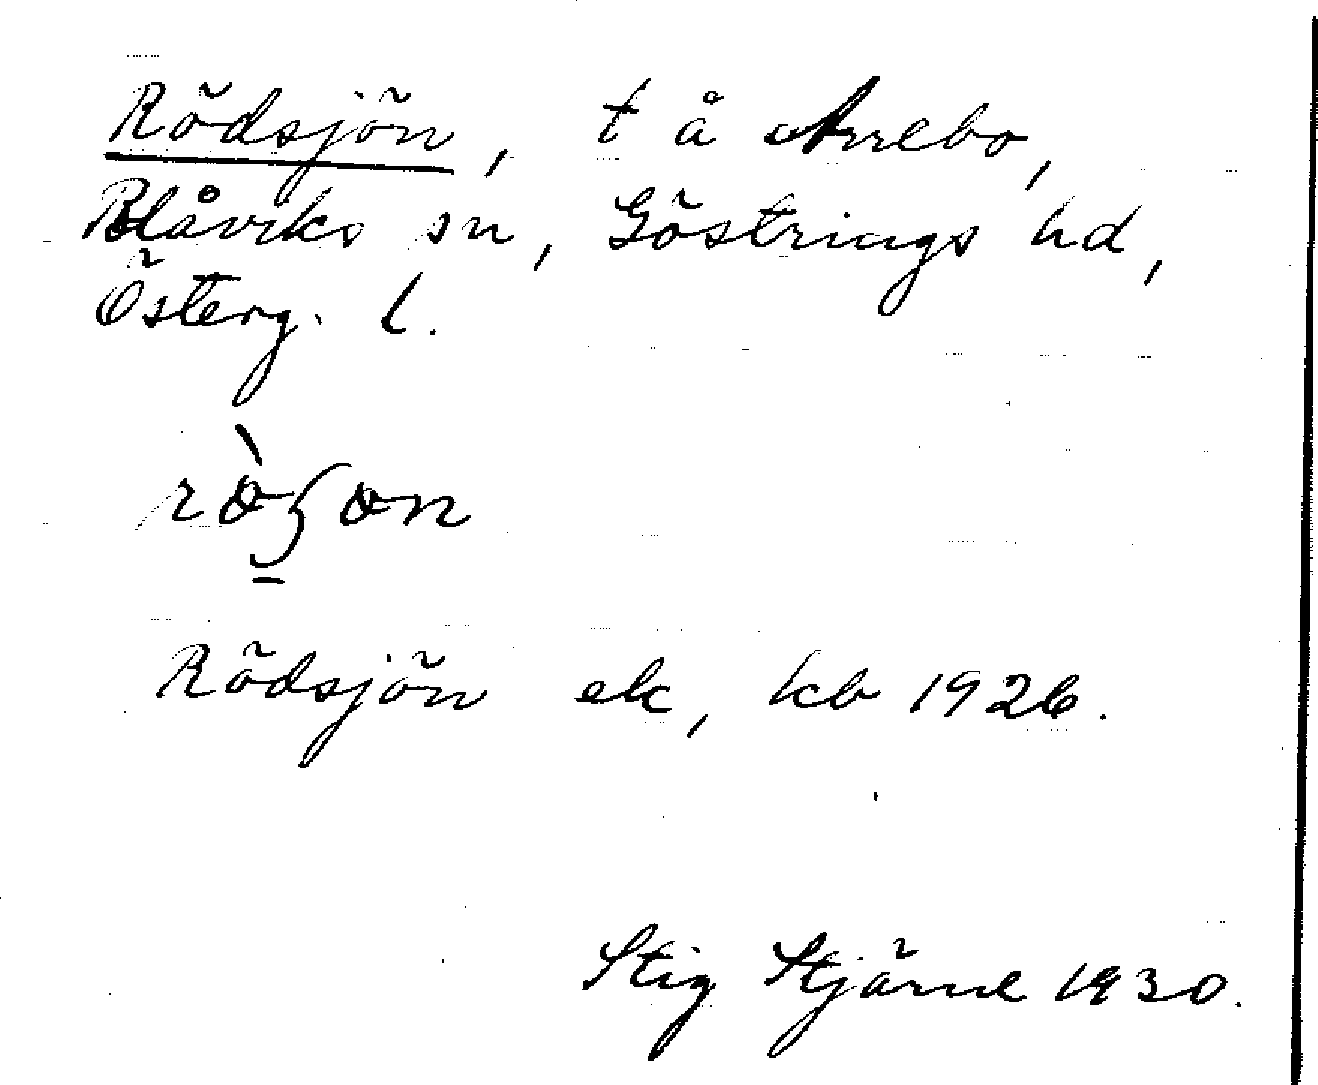 Rödsjön, t å Arrebo,
Blåviks sn, Göstrings hd,
Österg. l.
Rödsjön ek, kb 1926.
Stig Stjärne 1930.